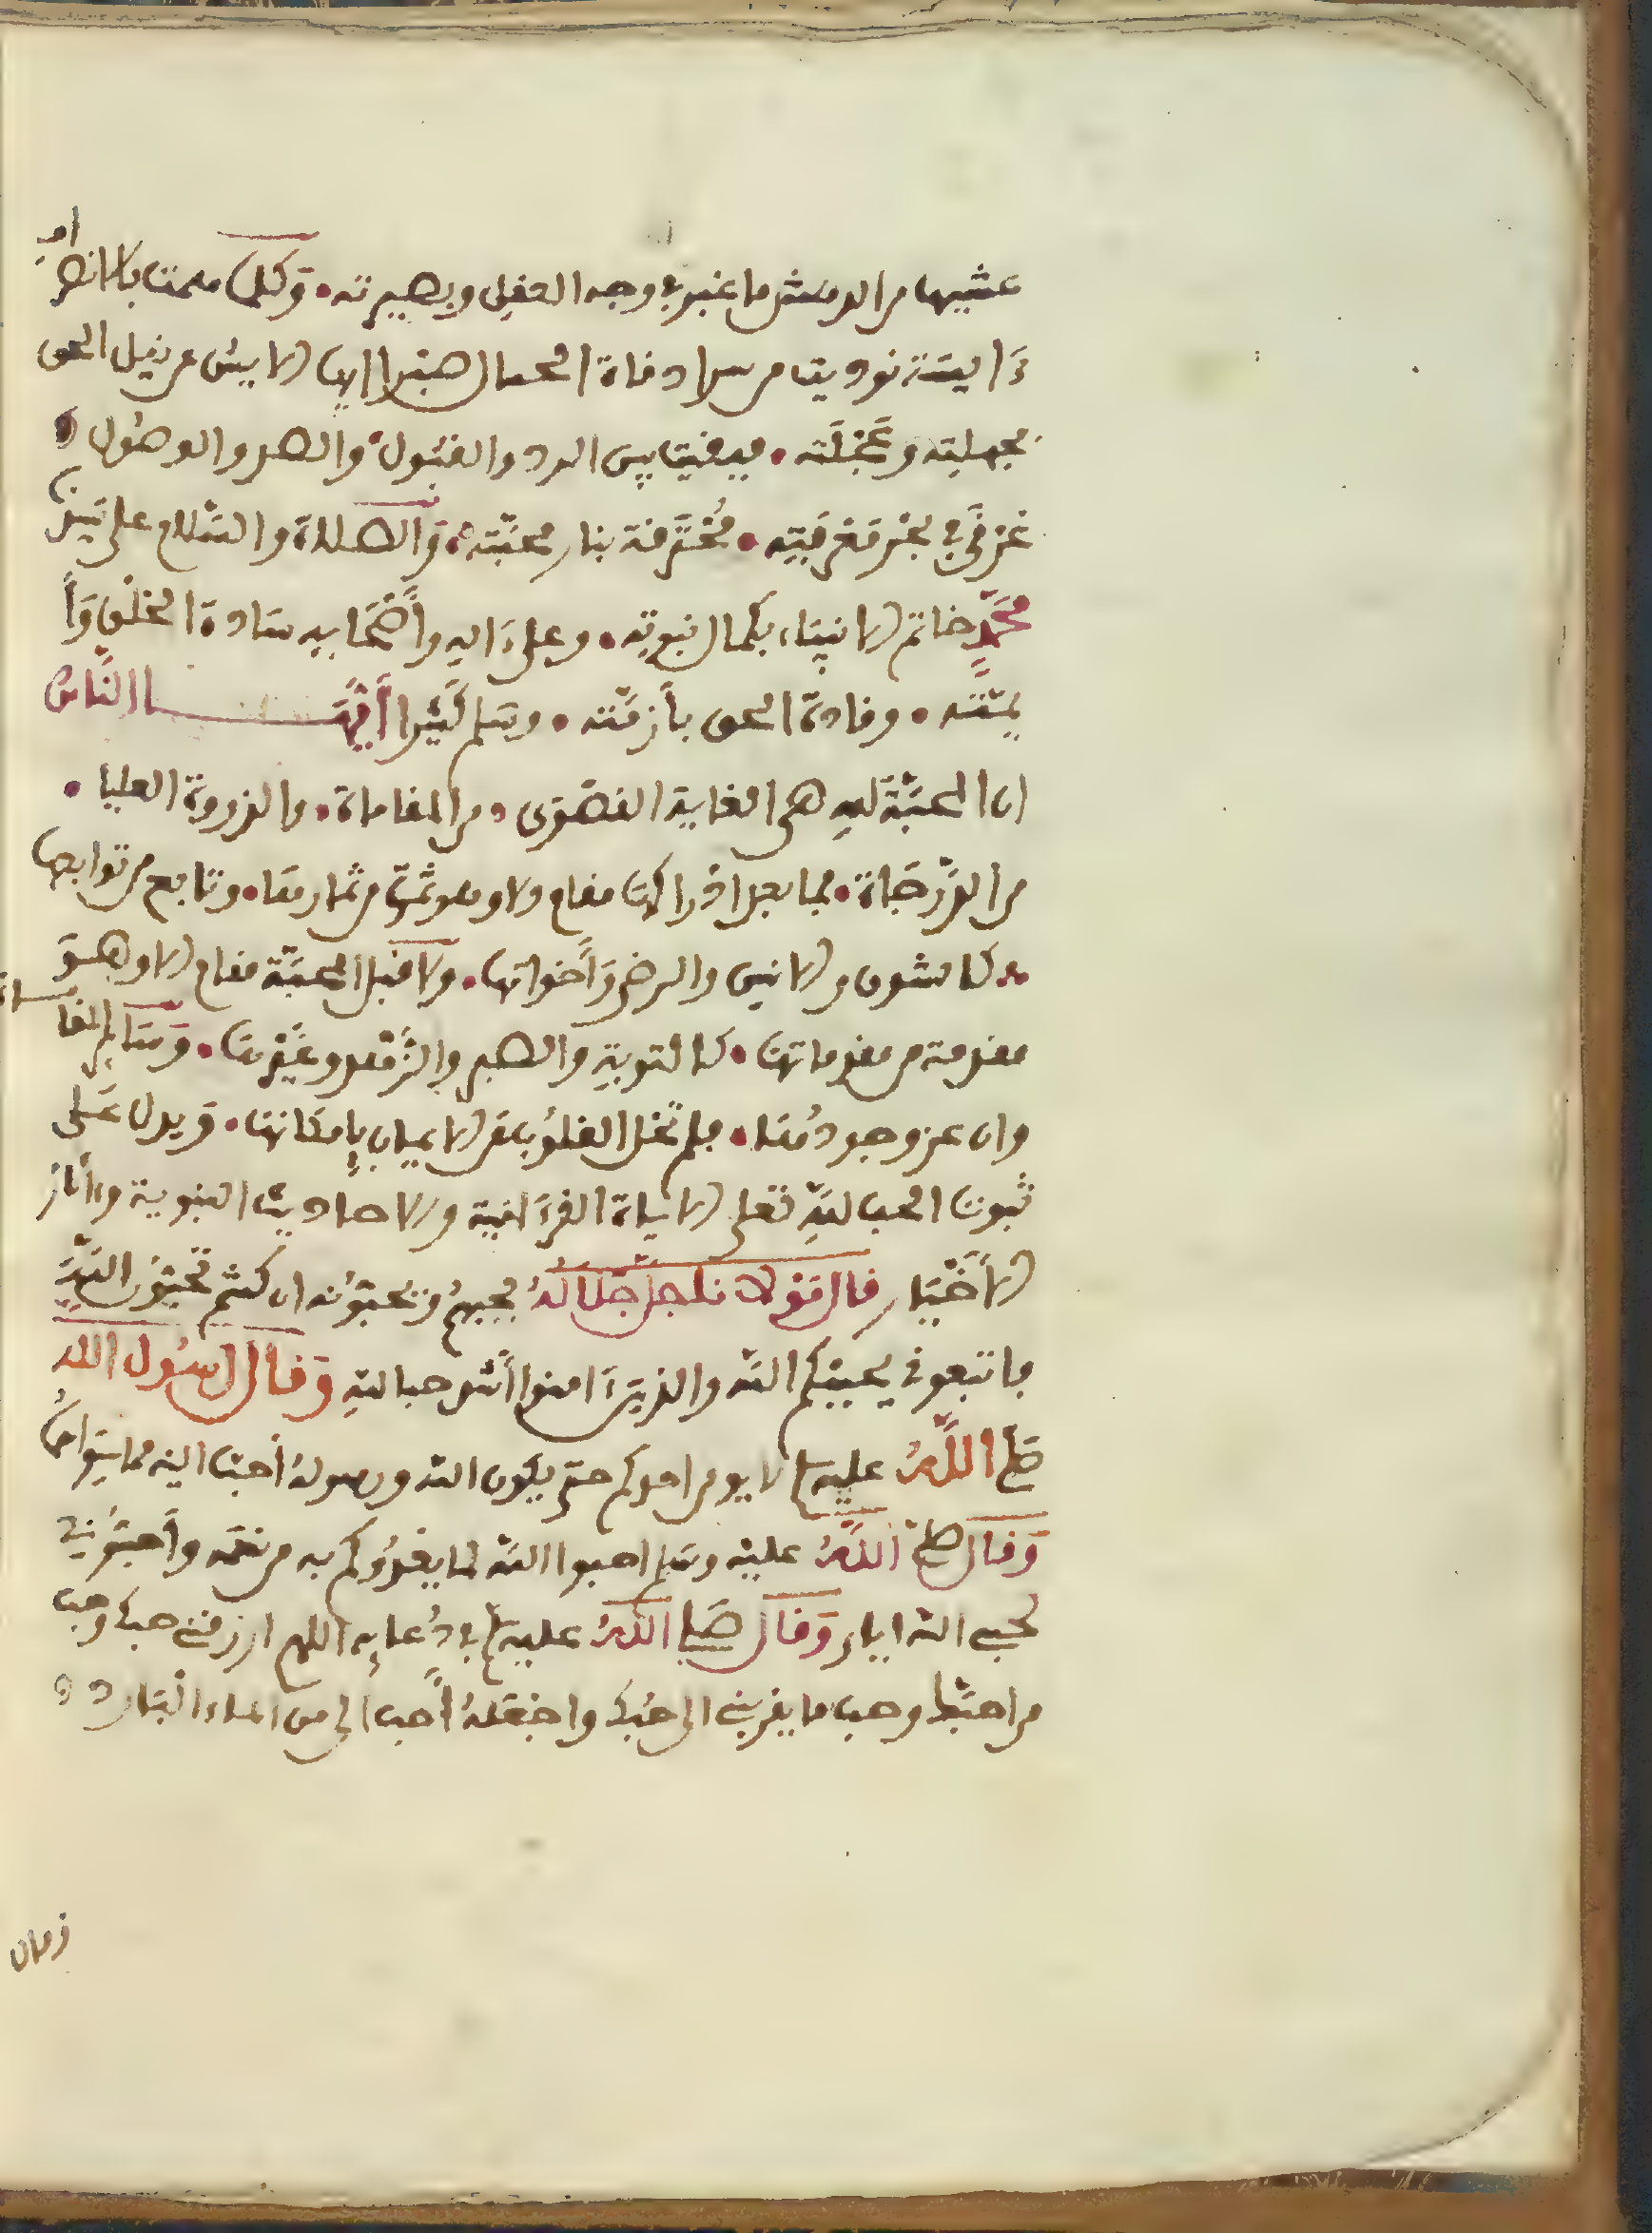 غشيها من الدهش ما غبر في وجه العقل وبصيرته. وكلما همت بالانصراف
ءايسة نوديت من سرادقاة الجمال صبرا ايها الايس عن نيل الحق
بجهلته وعجلته. فبقيت بين الرد والقبول والصد والوصول
غرقى في بحر معرفته. محترقة بنار محبته. والصلاة والسلام على سيدنا
محمد خاتم الانبياء بكمال نبوته. وعلى ءاله وأصحابه سادة الخلق وأ
يمته. وقادة الحق بأزمته. وسلم كثيرا أيها الناس
ان المحبة لله هي الغاية القصوى. من المقاماة. والذروة العليا.
من الدرجاة. فما بعد ادراكها مقام الا وهو ثمرة من ثمارها. وتابع من توابعها
كالشوق والانس والرضى وأخواتها. ولا قبل المحبة مقام الا وهو
مقدمة من مقدماتها. كالتوبة والصبر والزهد وغيرها. وسائر المقاماة
وان عز وجودها. فلم تخل القلوب عن الايمان بإمكانها. ويدل على
ثبوت الحب لله تعلى الاياة القرءانية والاحاديث النبوية وءاثار
الأخيار قال مولانا جل جلاله يحبهم ويحبونه ان كنتم تحبون الله
فاتبعوني يحببكم الله والذين ءامنوا أشد حبا لله وقال رسول الله
صلى الله عليه وسلم لا يومن احدكم حتى يكون الله ورسوله أحب اليه مما سواهما
وقال صلى الله عليه وسلم احبوا الله لما يغذوكم به من نعمه وأحبوني
لحب الله اياي وقال صلى الله عليه وسلم في دعايه اللهم ارزقني حبك وحب
من احبك وحب ما يقربني الى حبك واجعله أحب الي من الماء البارد
زمان